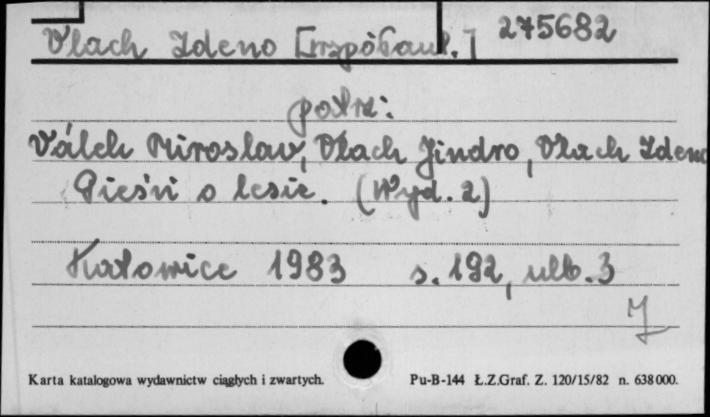 Vlach Zdeno [współaut.] 275682
patrz:
Válek Miroslav, Vlach Jindro, Vlach Zdeno
Pieśń o lesie. (Wyd. 2)
Katowice 1983 s. 192, nlb. 3
Karta katalogowa wydawnictw ciągłych i zwartych. Pu-B-144 Ł.Z.Graf. Z. 120/15/82 n. 638000.